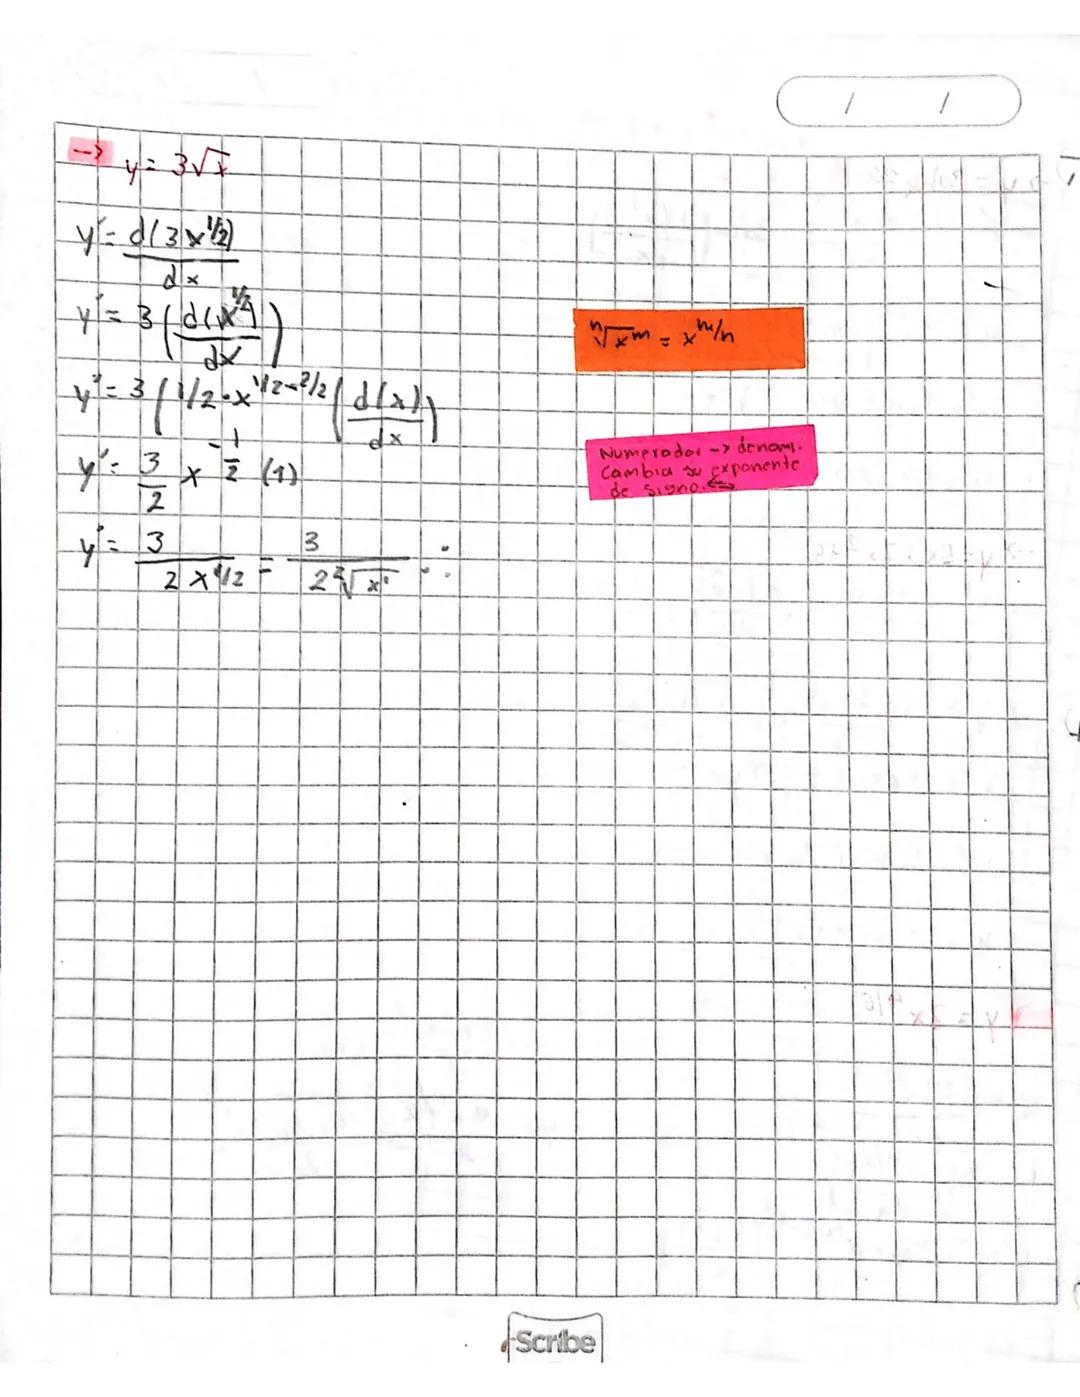 / /
--> y = 3√x
y' = d(3x^1/2)
dx
y' = 3 ( d(x^1/2) )
dx
y' = 3 ( 1/2 · x^1/2-2/2 ( d(x) ) )
dx
y' = 3/2 x^-1/2 (1)
y' = 3 / 2x^1/2 = 3 / 2 ²√x¹ ∴
ⁿ√x^m = x^m/n
Numerador -> denomi.
Cambia su exponente
de signo.
Scribe